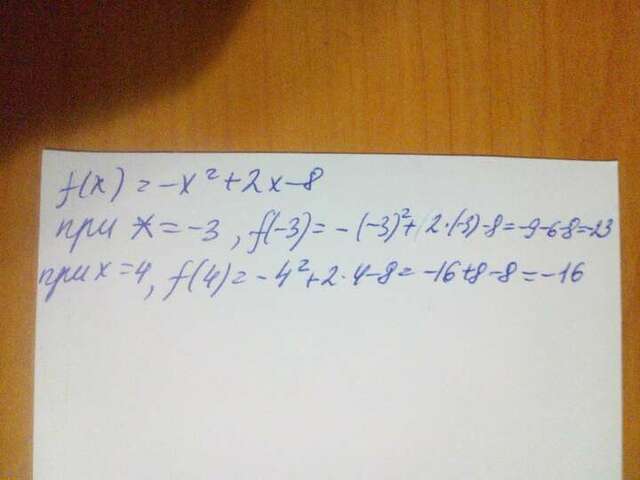 f(x) = -x² + 2x - 8
при x = -3, f(-3) = -(-3)² + 2·(-3) - 8 = -9 - 6 - 8 = -23
при x = 4, f(4) = -4² + 2·4 - 8 = -16 + 8 - 8 = -16